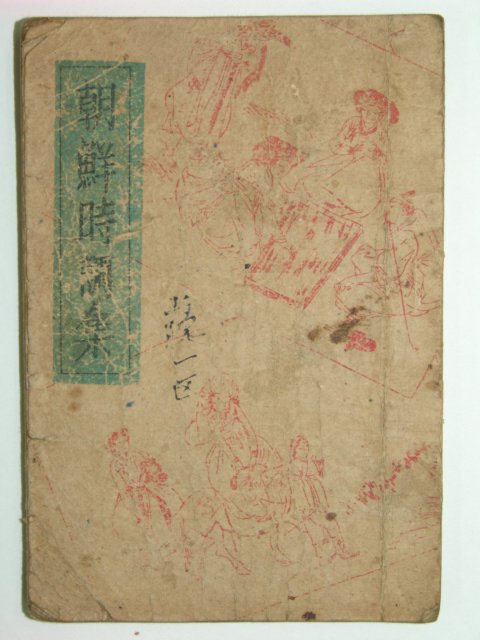 朝鮮時調集
一区